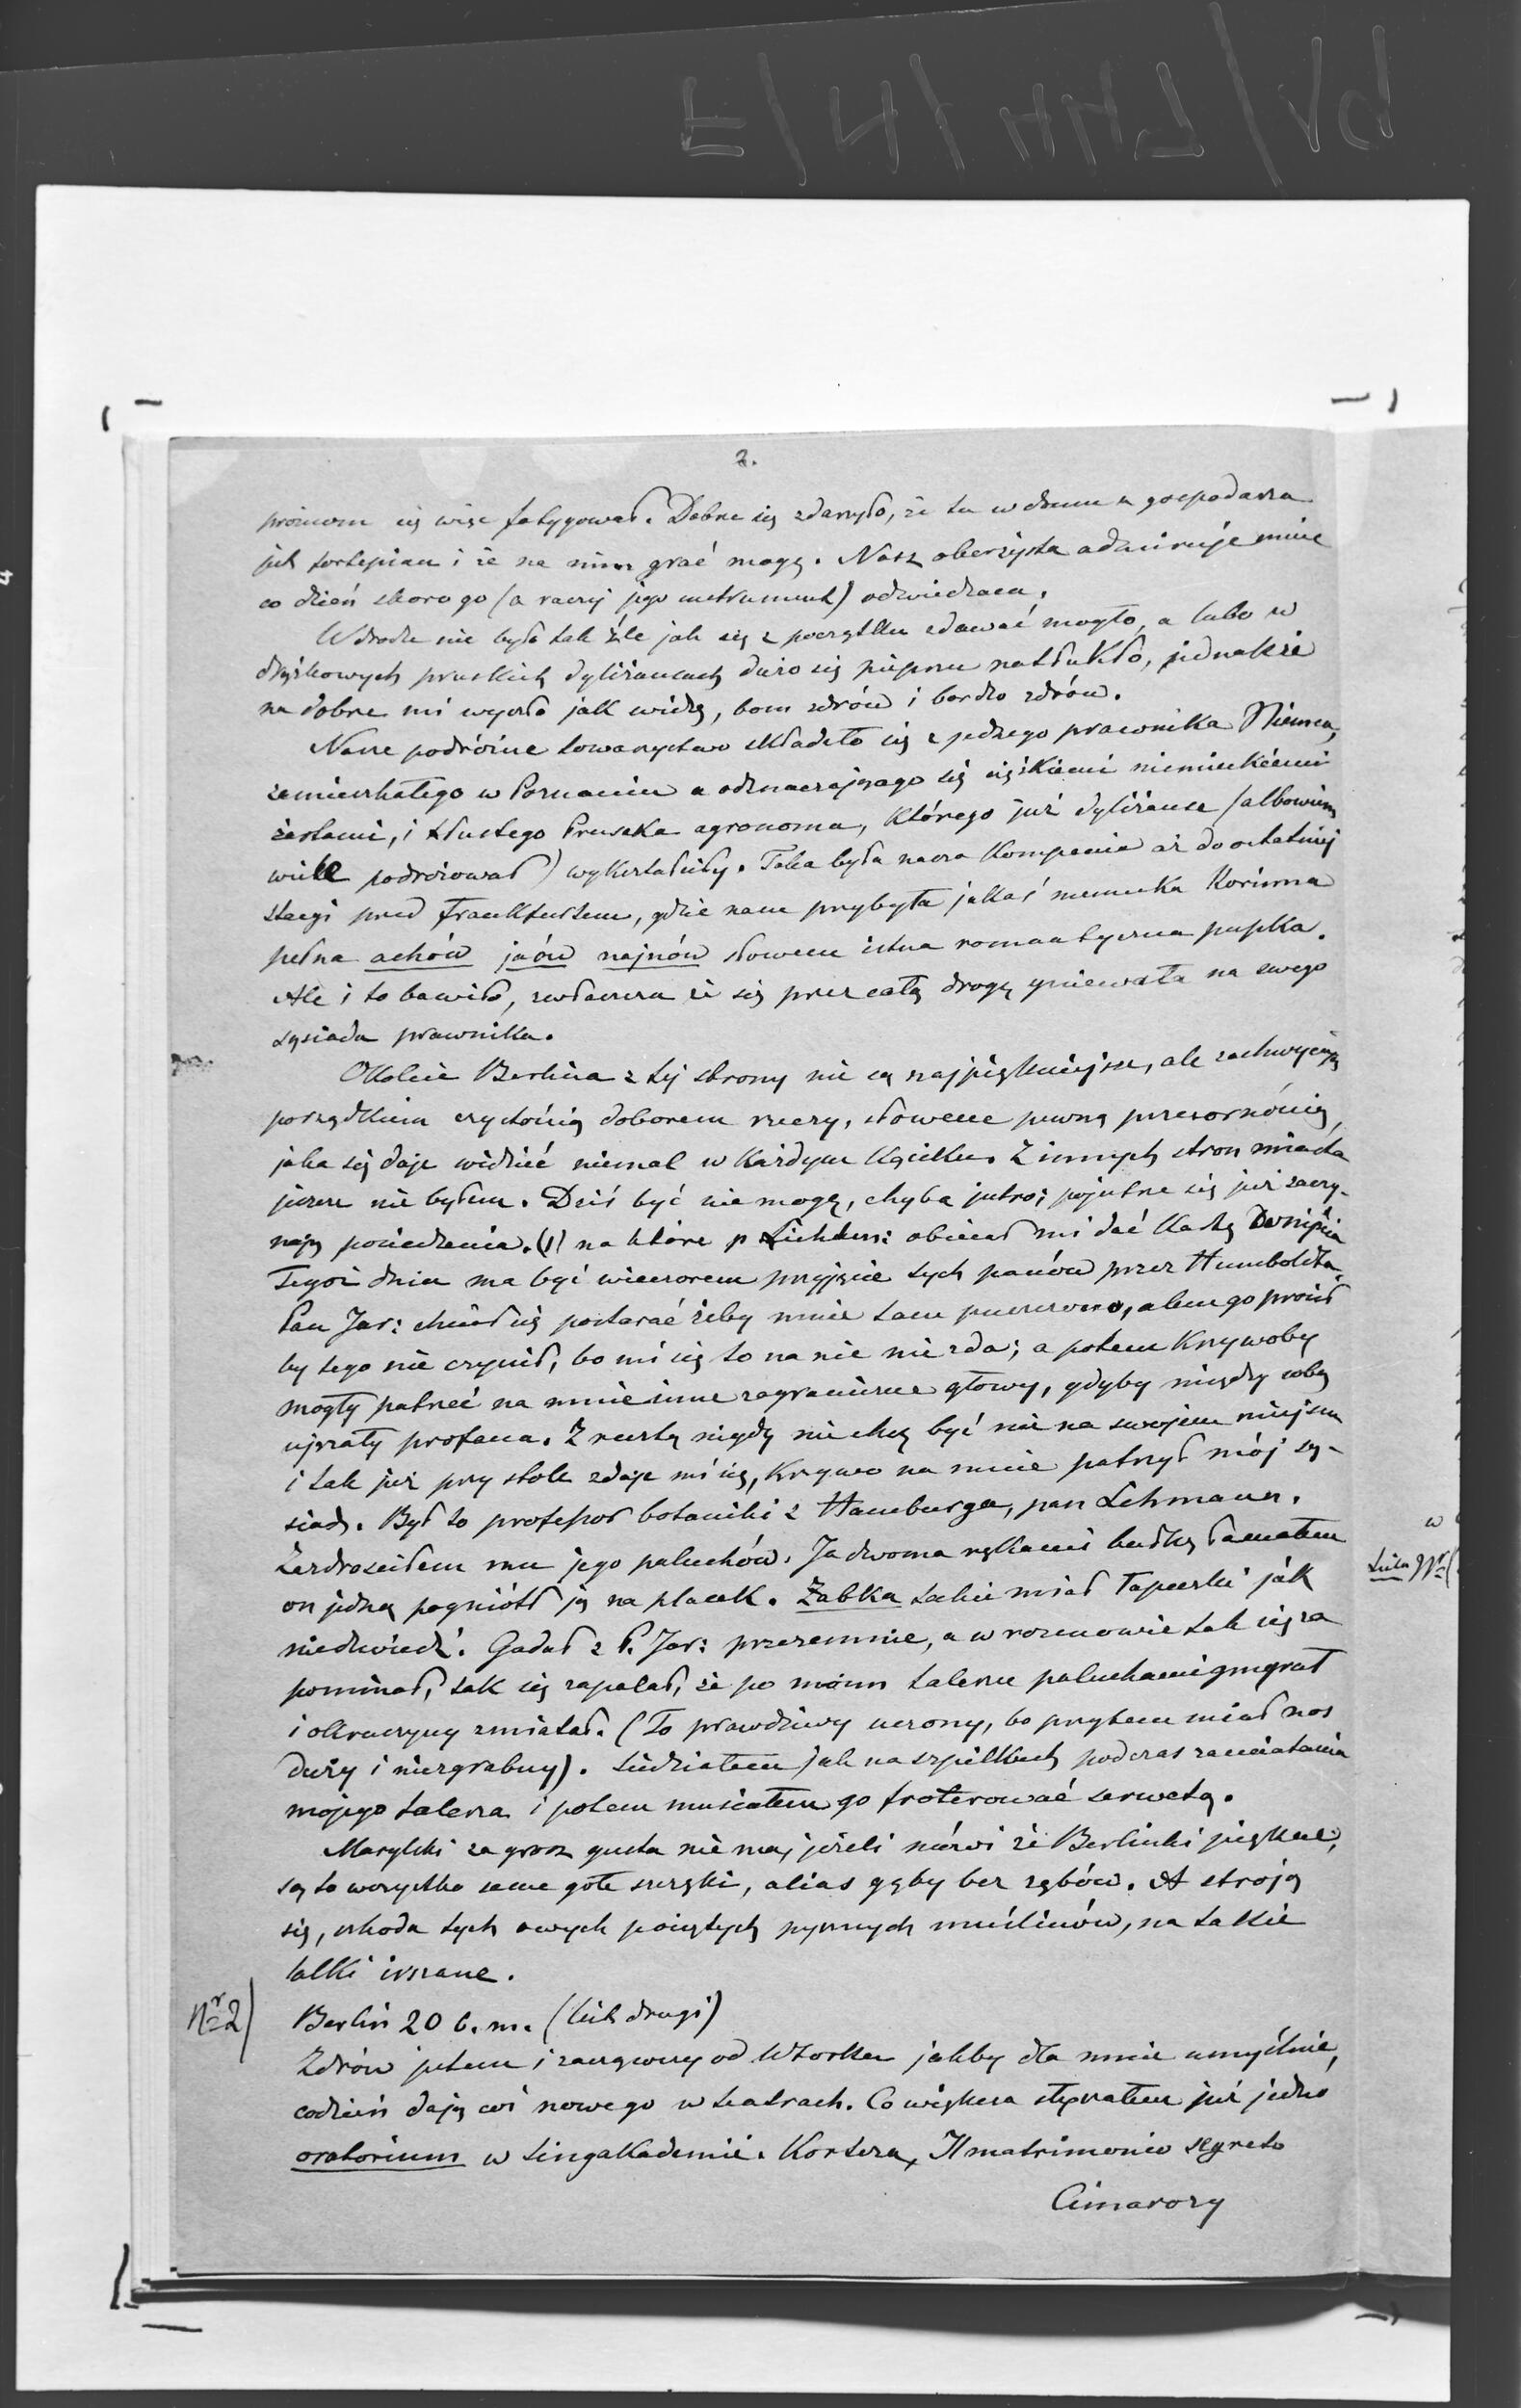 2.
próżnom się więc fatygował. Dobrze się zdarzyło, że tu w domu u gospodarza
jest fortepian i że na nim grać mogę. Nasz oberżysta admiruje mnie
co dzień skoro go (a raczej jego instrument) odwiedzam.
W drodze nie było tak źle jak się z początku zdawać mogło, a lubo w
drążkowych pruskich dyliżansach dużo się pieprzu natłukło, jednakże
na dobre mi wyszło jak widzę, bom zdrów i bardzo zdrów.
Nasze podróżne towarzystwo składało się z jednego prawnika Niemca,
zamieszkałego w Poznaniu a odznaczającego się ciężkiemi niemieckiemi
żartami, i tłustego Prusaka agronoma, którego już dyliżanse (albowiem
wiele podróżował) wykształciły. Taka była nasza kompania aż do ostatniej
stacyi przed Frankfurtem, gdzie nam przybyła jakaś niemiecka Korinna
pełna achów jaów najnów słowem istna romantyczna pupka.
Ale i to bawiło, zwłaszcza że się przez całą drogę gniewała na swego
sąsiada prawnika.
Okolice Berlina z tej strony nie są najpiękniejsze, ale zachwycają
porządkiem czystością doborem rzeczy, słowem pewną przezornością,
jaka się daje widzieć niemal w każdym kąciku. Z innych stron miasta
jeszcze nie byłem. Dziś być nie mogę, chyba jutro; pojutrze się już zaczy-
nają posiedzenia. (1) na które p Lichten: obiecał mi dać kartę wnijścia
Tegoż dnia ma być wieczorem przyjęcie tych panów przez Humboldta.
Pan Jar: chciał się postarać żeby mnie tam puszczono, alem go prosił
by tego nie czynił, bo mi się to na nic nie zda; a potem krzywoby
mogły patrzeć na mnie inne zagraniczne głowy, gdyby między sobą
ujrzały profana. Z resztą nigdy nie chcę być nie na swojem miejscu
i tak już przy stole zdaje mi się, krzywo na mnie patrzył mój są-
siad. Był to professor botaniki z Hamburga, pan Lehmann.
Zazdrościłem mu jego paluchów. Ja dwoma rękami bułkę łamałem
on jedną pogniótł ją na placek. Żabka takie miał łapeczki jak
niedźwiedź. Gadał z P. Jar: przezemnie, a w rozmowie tak się za
pominał, tak się zapalał, że po moim talerzu paluchami gmyrał
i okruszyny zmiatał. (To prawdziwy uczony, bo przytem miał nos
duży i niezgrabny). Siedziałem jak na szpilkach podczas zamiatania
mojego talerza i potem musiałem go froterować serwetą.
Marylski za grosz gustu nie ma, jeżeli mówi że Berlinki piękne,
są to wszystko same gołe szczęki, alias gęby bez zębów. A stroją
się, szkoda tych owych pociętych pysznych muślinów, na takie
lalki irszane.
Nr 2) Berlin 20 b. m. (list drugi)
Zdrów jestem i zacząwszy od Wtorku jakby dla mnie umyślnie,
codzień dają coś nowego w teatrach. Co większa słyszałem już jedno
oratorium w Singakademie. Korteza, Il matrimonio segreto
Cimarozy